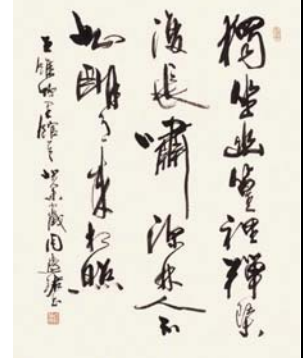 獨坐幽篁裡彈琴
復長嘯深林人不
知明月來相照
王維竹里館 歲周慧珺